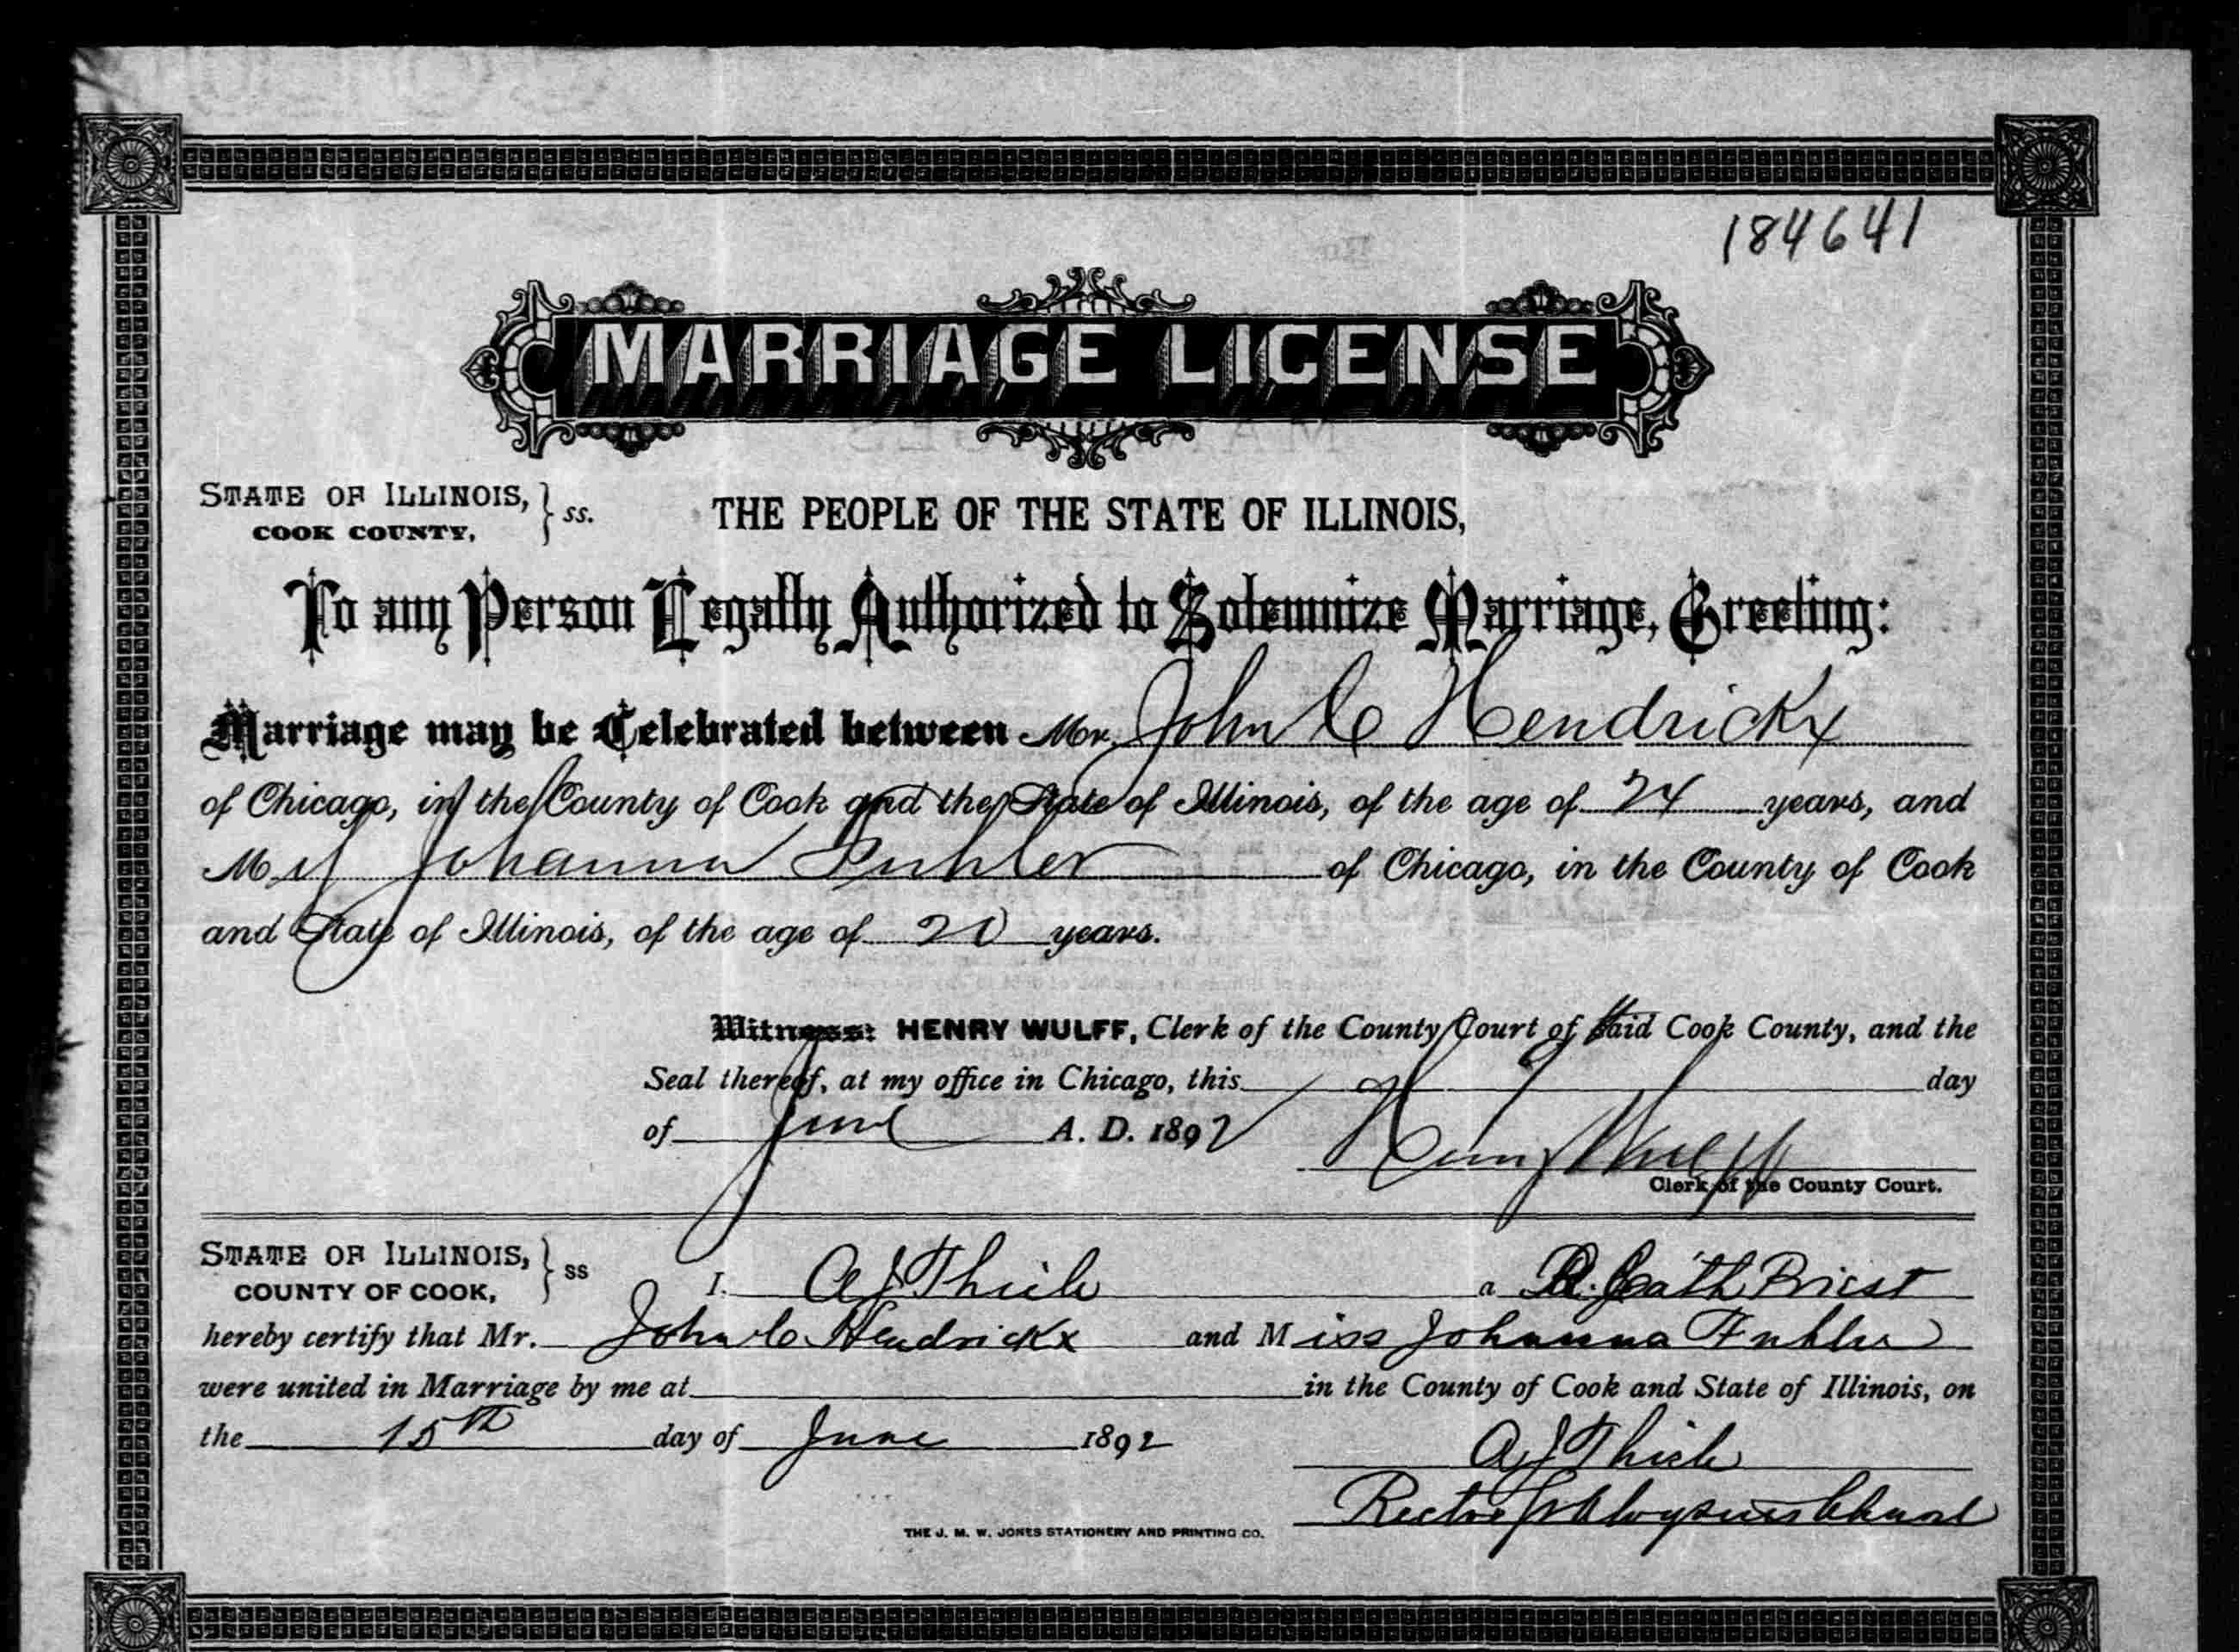 184641
MARRIAGE LICENSE
STATE OF ILLINOIS, } ss.
COOK COUNTY,
THE PEOPLE OF THE STATE OF ILLINOIS,
To any Person Legally Authorized to Solemnize Marriage, Greeting:
Marriage may be Celebrated between Mr. John C Hendrickx
of Chicago, in the County of Cook and the State of Illinois, of the age of 24 years, and
M Johanna of Chicago, in the County of Cook
and State of Illinois, of the age of 20 years.
Witness: HENRY WULFF, Clerk of the County Court of said Cook County, and the
Seal thereof, at my office in Chicago, this day
of June A. D. 1892
Henry Wulff
Clerk of the County Court.
STATE OF ILLINOIS, } ss
COUNTY OF COOK,
I. A J Thiele a R. Cath Priest
hereby certify that Mr. John C. Hendrickx and Miss Johanna
were united in Marriage by me at in the County of Cook and State of Illinois, on
the 15th day of June 1892
A J Thiele
Rector St Aloysius Church
THE J. M. W. JONES STATIONERY AND PRINTING CO.